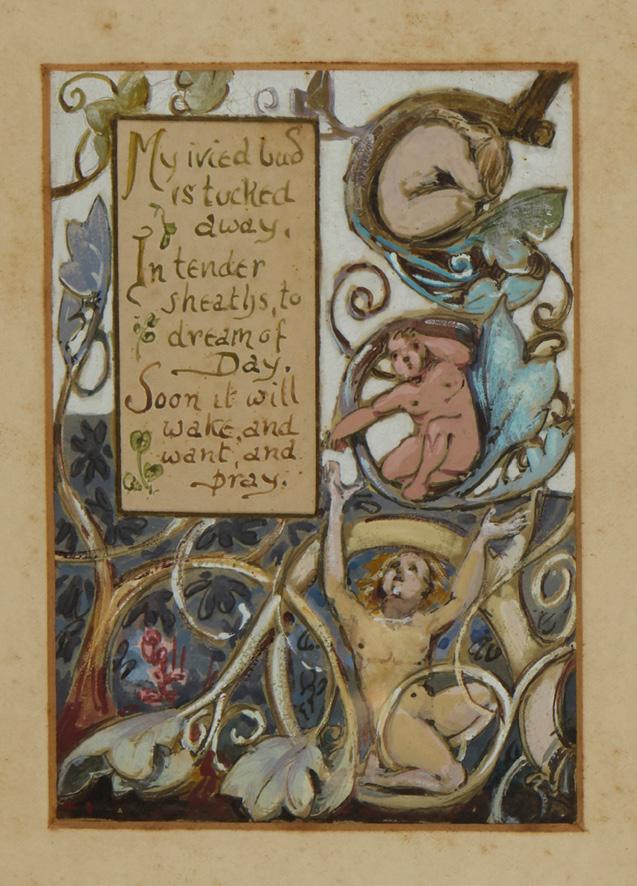 My ivied bud
is tucked
away.
In tender
sheaths, to
dream of
Day.
Soon it will
wake, and
want, and
pray.